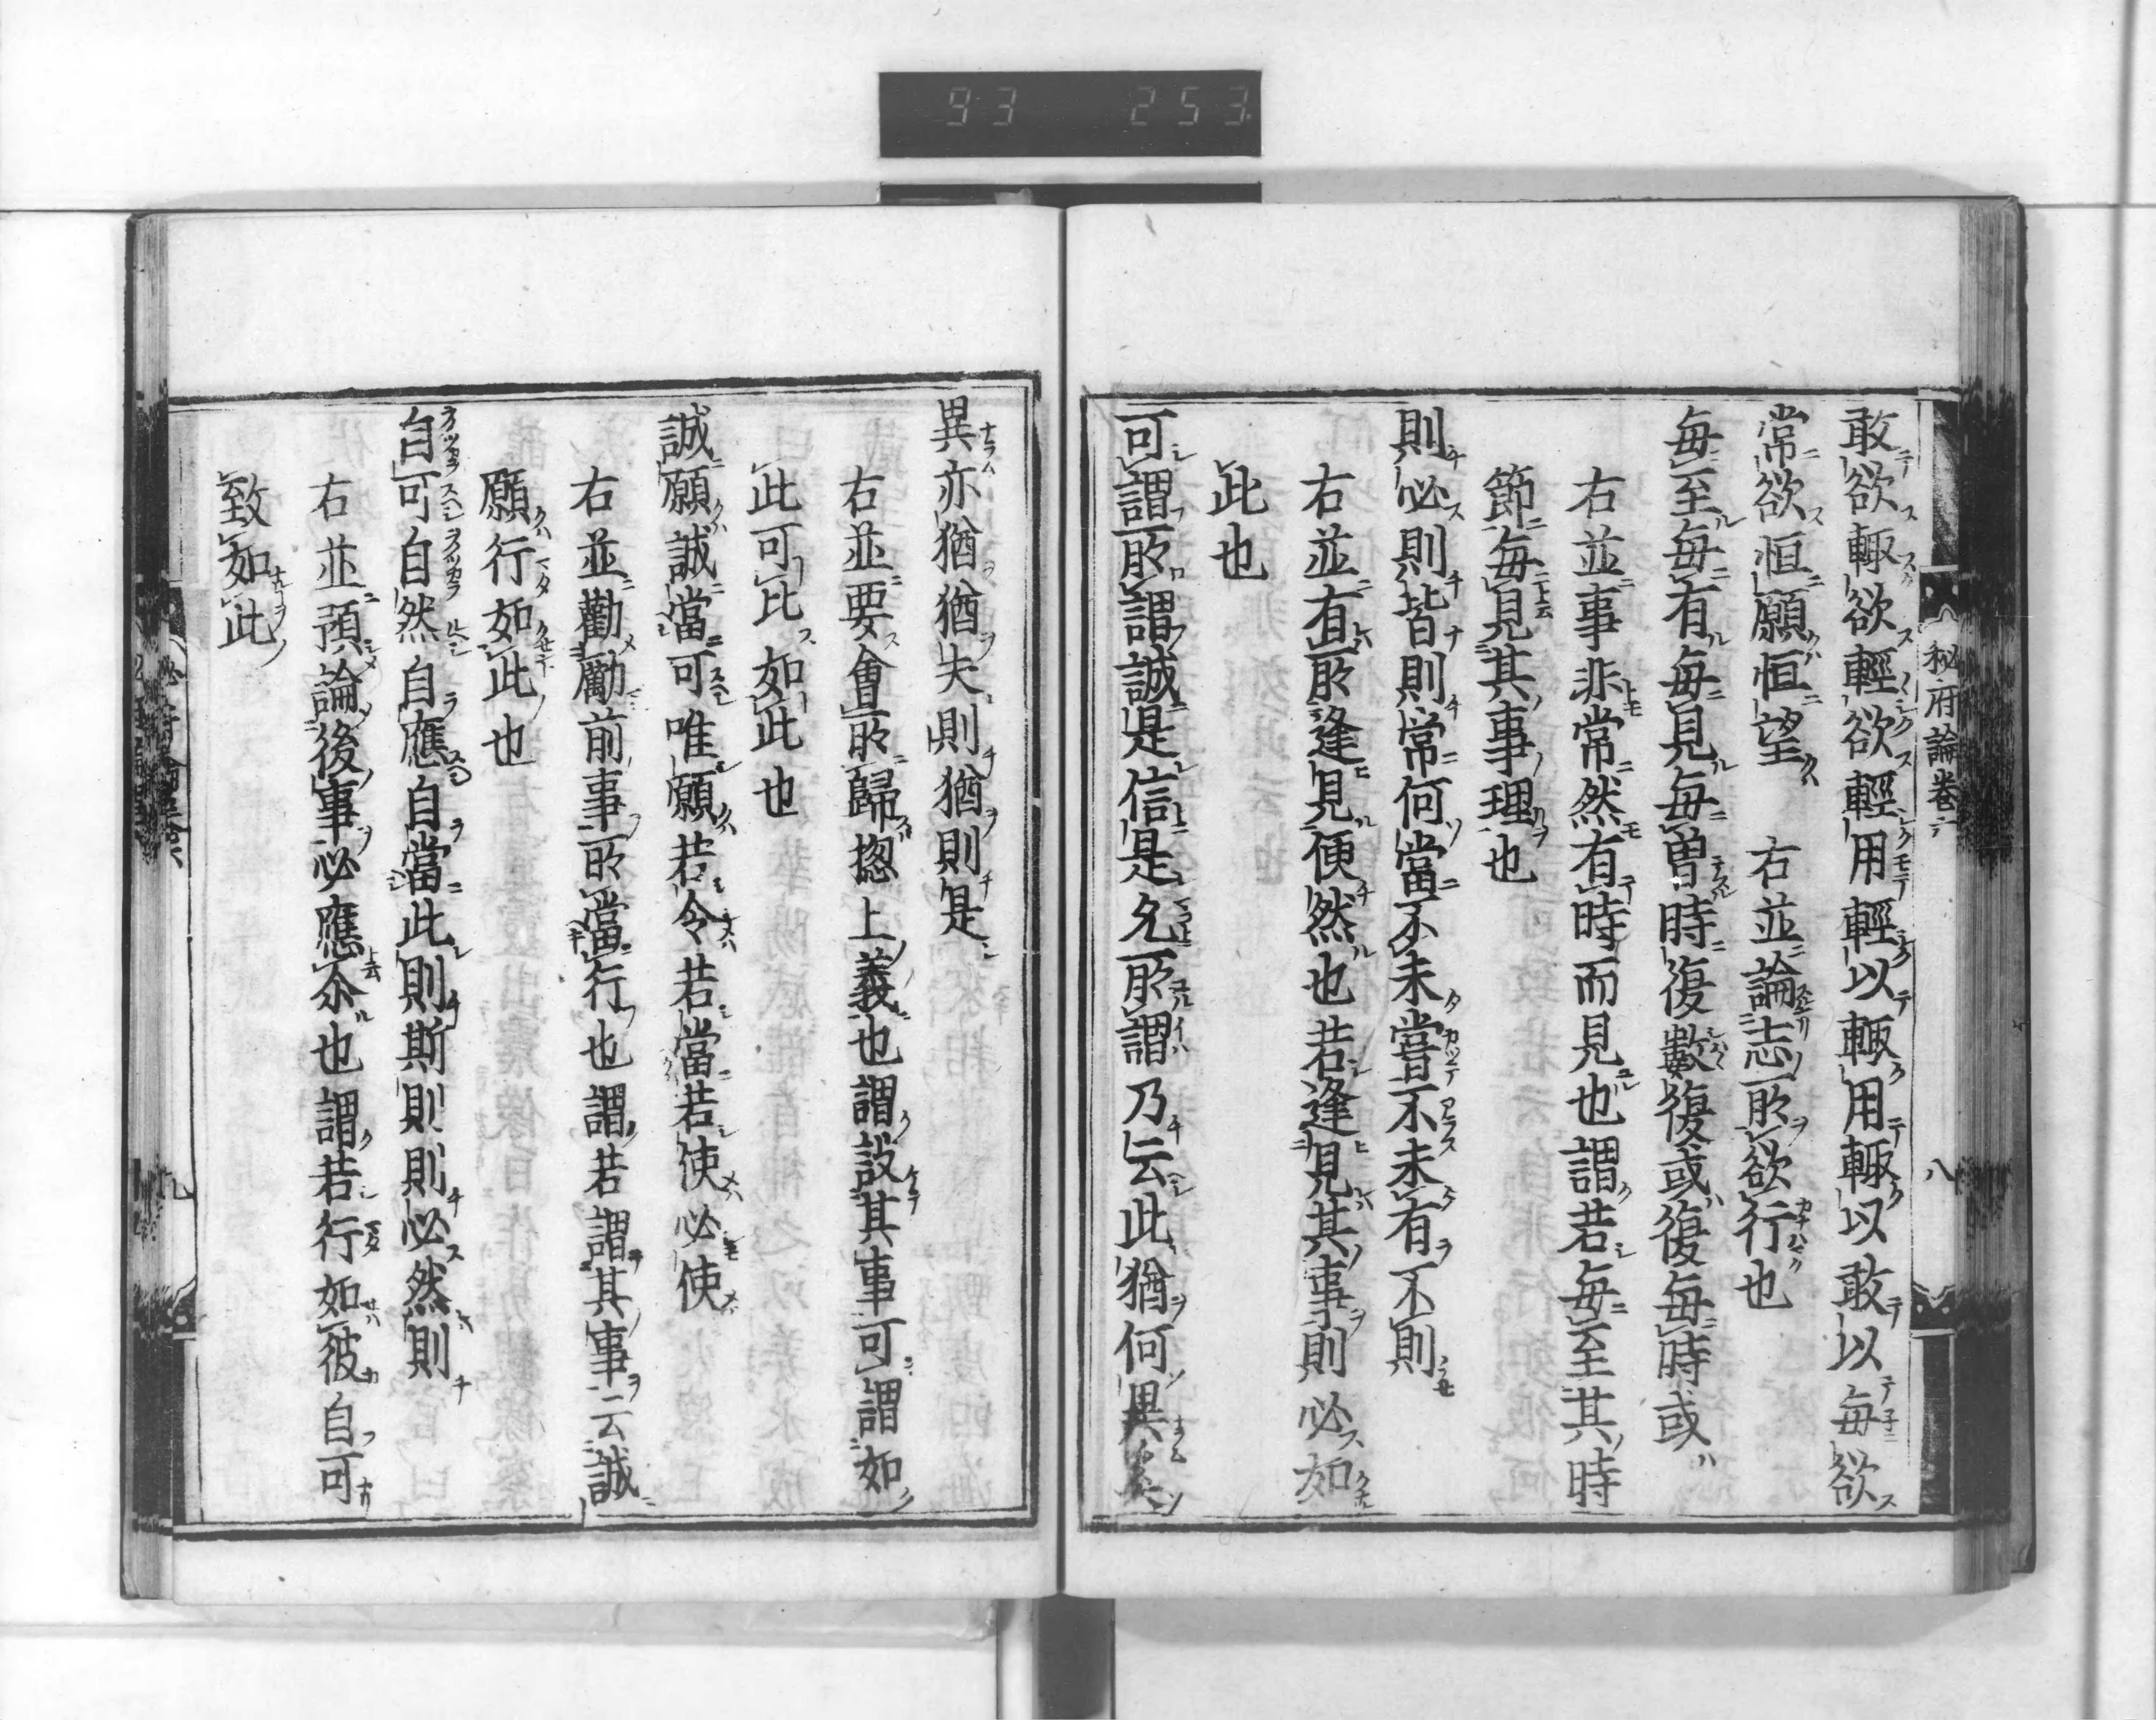 93 253
秘府論卷六
八
敢欲輙欲輕欲輕用輕以輙用輙以敢以毎欲
常欲恒願恒望 右並論志所欲行也
毎至毎有毎見毎曽時復數復或復毎時或
右並事非常然有時而見也謂若毎至其時
節毎見其事理也
則必則皆則常何當不未嘗不未有不則
右並有所逢見便然也若逢見其事則必如
此也
可謂所謂誠是信是允所謂乃云此猶何異
異亦猶猶夫則猶則是
右並要會所歸揔上義也謂設其事可謂如
此可比如此也
誠願誠當可唯願若令若當若使必使
右並勸勵前事所當行也謂若謂其事云誠
願行如此也
自可自然自應自當此則斯則則必然則
右並預論後事必應尒也謂若行如彼自可
致如此
九